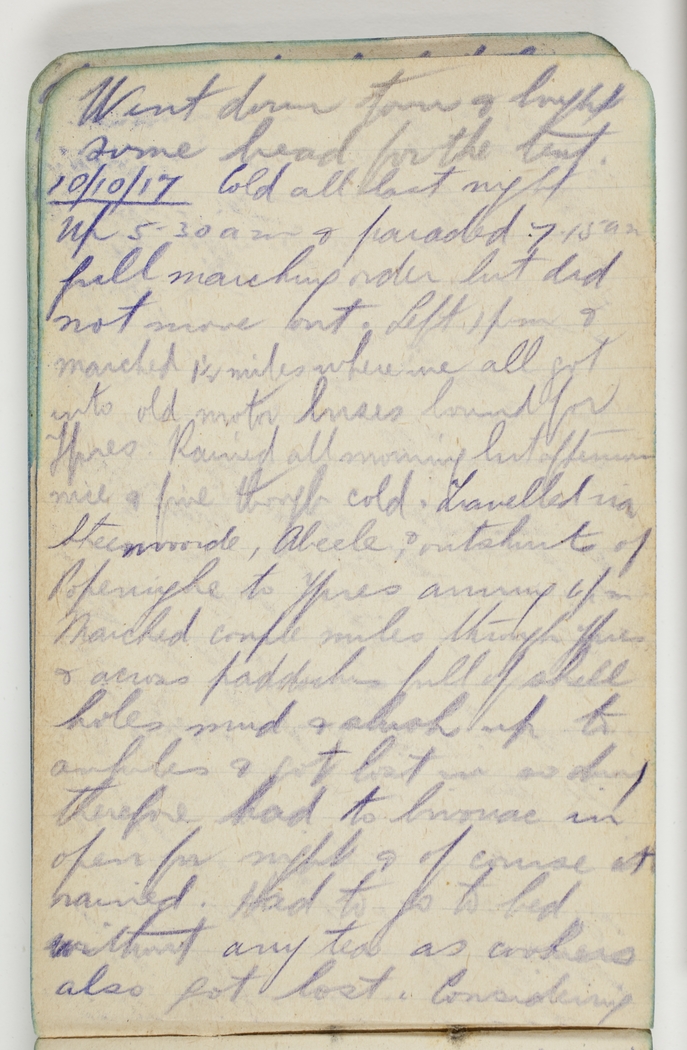 Went down town & bought
some bread for the tent.
10/10/17 Cold all last night
Up 5-30 am & paraded 7-15 am
full marching order but did
not move out. Left 1 pm &
marched 1½ miles where we all got
into old motor buses bound for
Ypres. Rained all morning but afternoon
nice & fine though cold. Travelled via
Steenvoorde, Abeele, & outskirts of
Poperinghe to Ypres arriving 4 pm
Marched couple miles through Ypres
& across paddocks full of shell
holes mud & slush up to
ankles & got lost in so doing
therefore had to bivouac in
open for night & of course it
rained. Had to go to bed
without any tea as cookers
also got lost. Considering